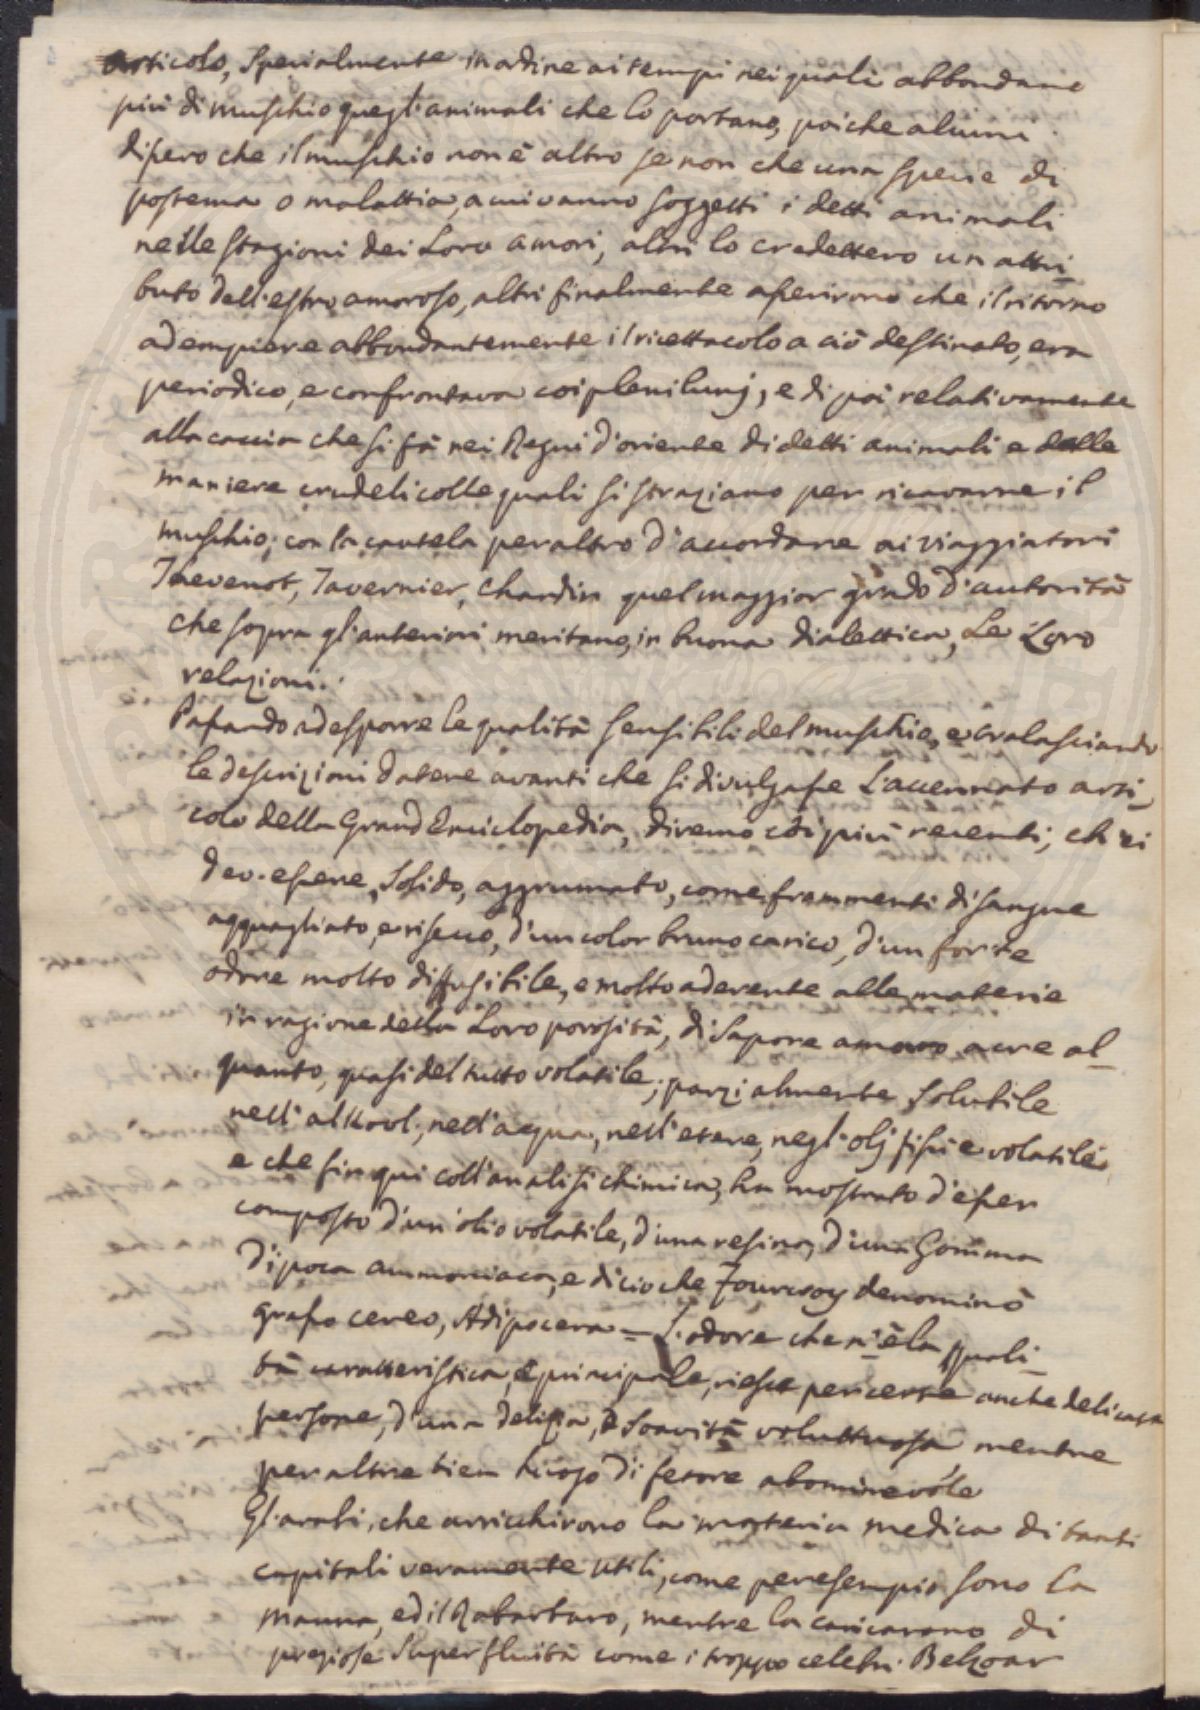 articolo, specialmente in ordine ai tempi nei quali abbondano
più di muschio quegl'animali che lo portano, poiche alcuni
dissero che il muschio non è altro se non che una specie di
postema o malattia, a cui vanno soggetti i detti animali
nelle stagioni dei Loro amori, altri lo credettero un attri-
buto dell'estro amoroso, altri finalmente asserirono che il ritorno
ad empiere abbondantemente il ricettacolo a ciò destinato, era
periodico, e confrontava coi plenilunj, e di poi relativamente
alla caccia che si fà nei Regni d'oriente di detti animali e dalle
maniere crudeli colle quali si straziano per ricavarne il
muschio; con la cautela peraltro d'accordare ai viaggiatori
Thevenot, Tavernier, Chardin quel maggior grado d'autorità
che sopra gl'anteriori meritano, in buona dialettica, Le Loro
relazioni.
Passando ad esporre le qualità sensibili del muschio, e tralasciando
le descrizioni datene avanti che si divulgasse L'accennato arti-
colo della Grand Enciclopedia, diremo coi più recenti, ch'ei
dev'essere solido, aggrumato, come frammenti di sangue
agguagliato, e risecco, d'un color bruno carico, d'un forte
odore molto diffusibile, e molto aderente alle materie
in ragione della Loro porosità, di sapore amaro acre al-
quanto, quasi del tutto volatile; parzialmente solubile
nell'alkool, nell'acqua, nell'etere, negl'olj fissi e volatili,
e che fin qui coll'analisi chimica, ha mostrato d'esser
composto d'un'olio volatile, d'una resina, d'una Gomma
di poca ammoniaca, e di ciò che Fourcroy denominò
grasso cereo, Adipocera = L'odore che n'è la quali-
tà caratteristica, e principale, riesce per certe anche delicate
persone, d'una delizia, e soavità voluttuosa, mentre
per altre tien luogo di fetore abominevole
Gl'arabi, che arricchirono la materia medica di tanti
capitali veramente utili, come per esempio sono la
Manna, ed il Rabarbaro, mentre la caricarono di
preziose superfluità come i troppo celebri Belzoar